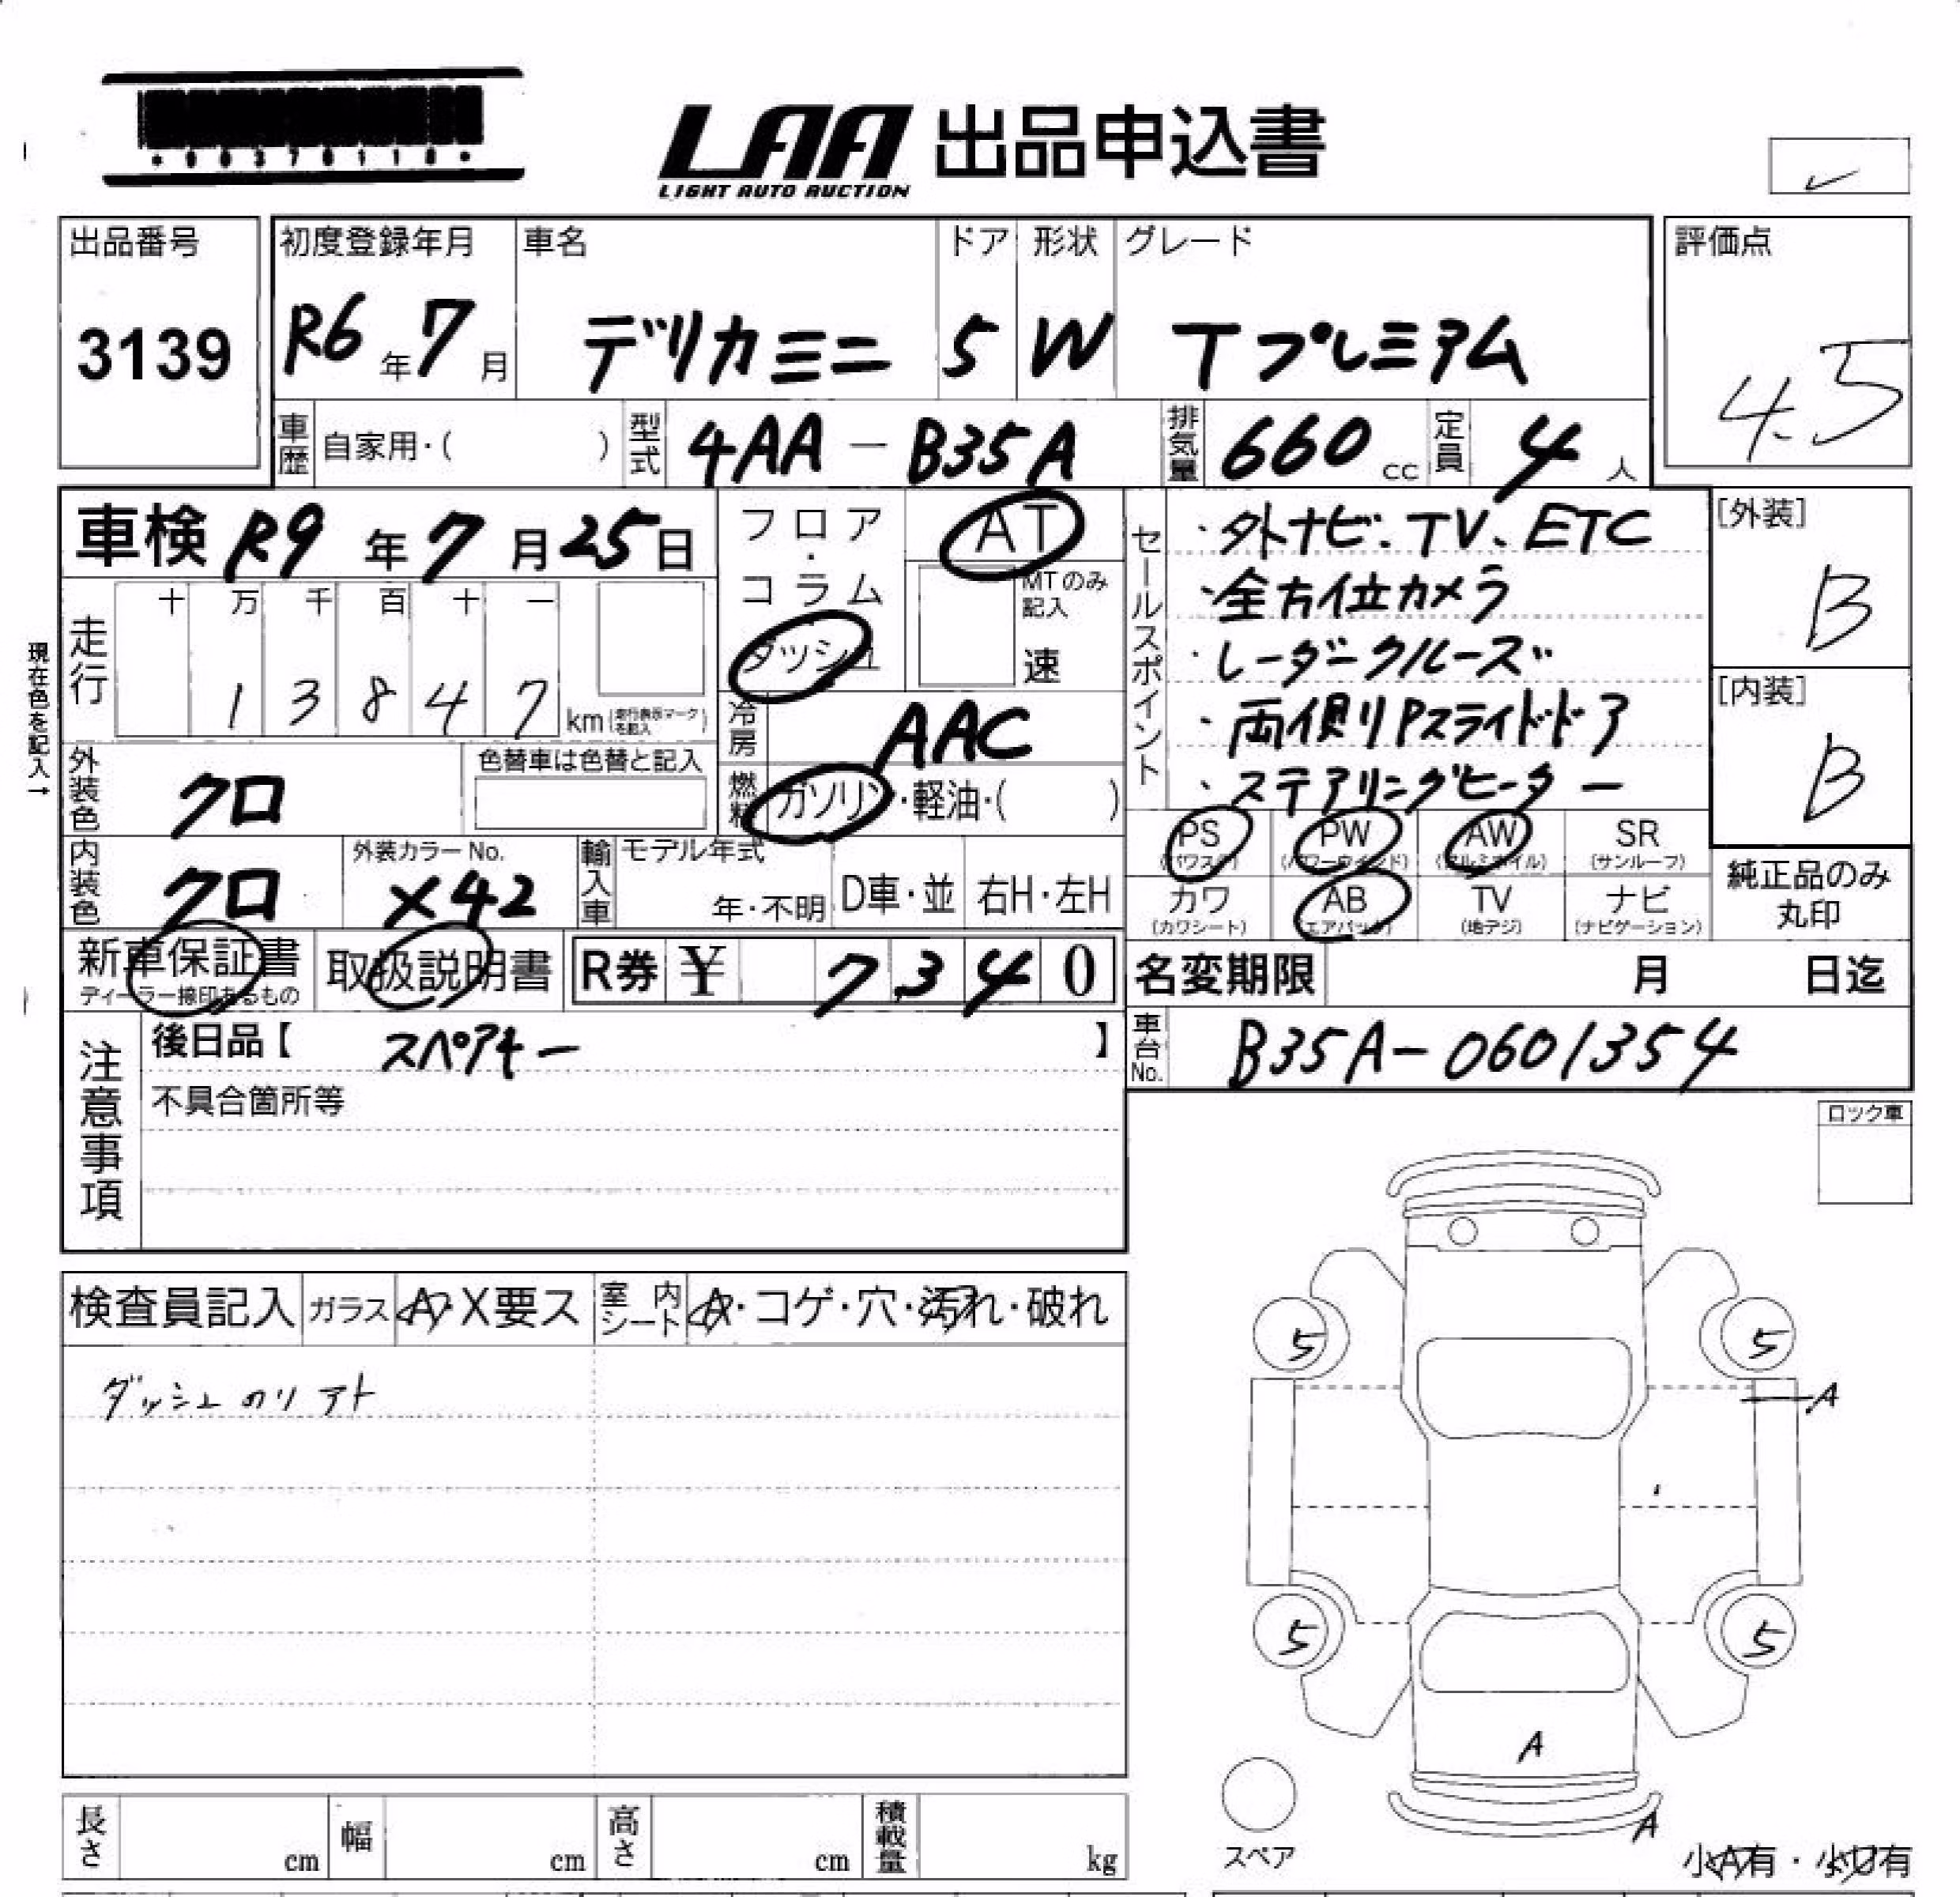 *00370110*
LAA 出品申込書
LIGHT AUTO AUCTION
✓
出品番号 3139
初度登録年月 R6年7月
車名 デリカミニ
ドア 5
形状 W
グレード Tプレミアム
評価点 4.5
車歴 自家用・( )
型式 4AA-B35A
排気量 660cc
定員 4人
車検 R9年7月25日
フロア・コラム
ダッシュ
AT
MTのみ記入
速
セールスポイント
・外ナビ、TV、ETC
・全方位カメラ
・レーダークルーズ
・両側Pスライドドア
・ステアリングヒーター
[外装] B
[内装] B
現在色を記入→
走行 十 万 千 百 十 一
1 3 8 4 7 km (走行表示マークを記入)
冷房 AAC
燃料 ガソリン・軽油・( )
外装色 クロ
色替車は色替と記入
内装色 クロ
外装カラーNo. X42
輸入車 モデル年式 年・不明
D車・並
右H・左H
PS (パワステ)
PW (パワーウインド)
AW (アルミホイル)
SR (サンルーフ)
カワ (カワシート)
AB (エアバック)
TV (地デジ)
ナビ (ナビゲーション)
純正品のみ丸印
新車保証書
ディーラー捺印あるもの
取扱説明書
R券 ¥ 7,340
名変期限 月 日迄
車台No. B35A-0601354
注意事項
後日品【 スペアキー 】
不具合箇所等
ロック車
検査員記入
ガラス A・X要ス
室内シート A・コゲ・穴・汚れ・破れ
ダッシュのリアト
5 5
A
5 5
A
A
スペア
小A有・小U有
長さ cm
幅 cm
高さ cm
積載量 kg